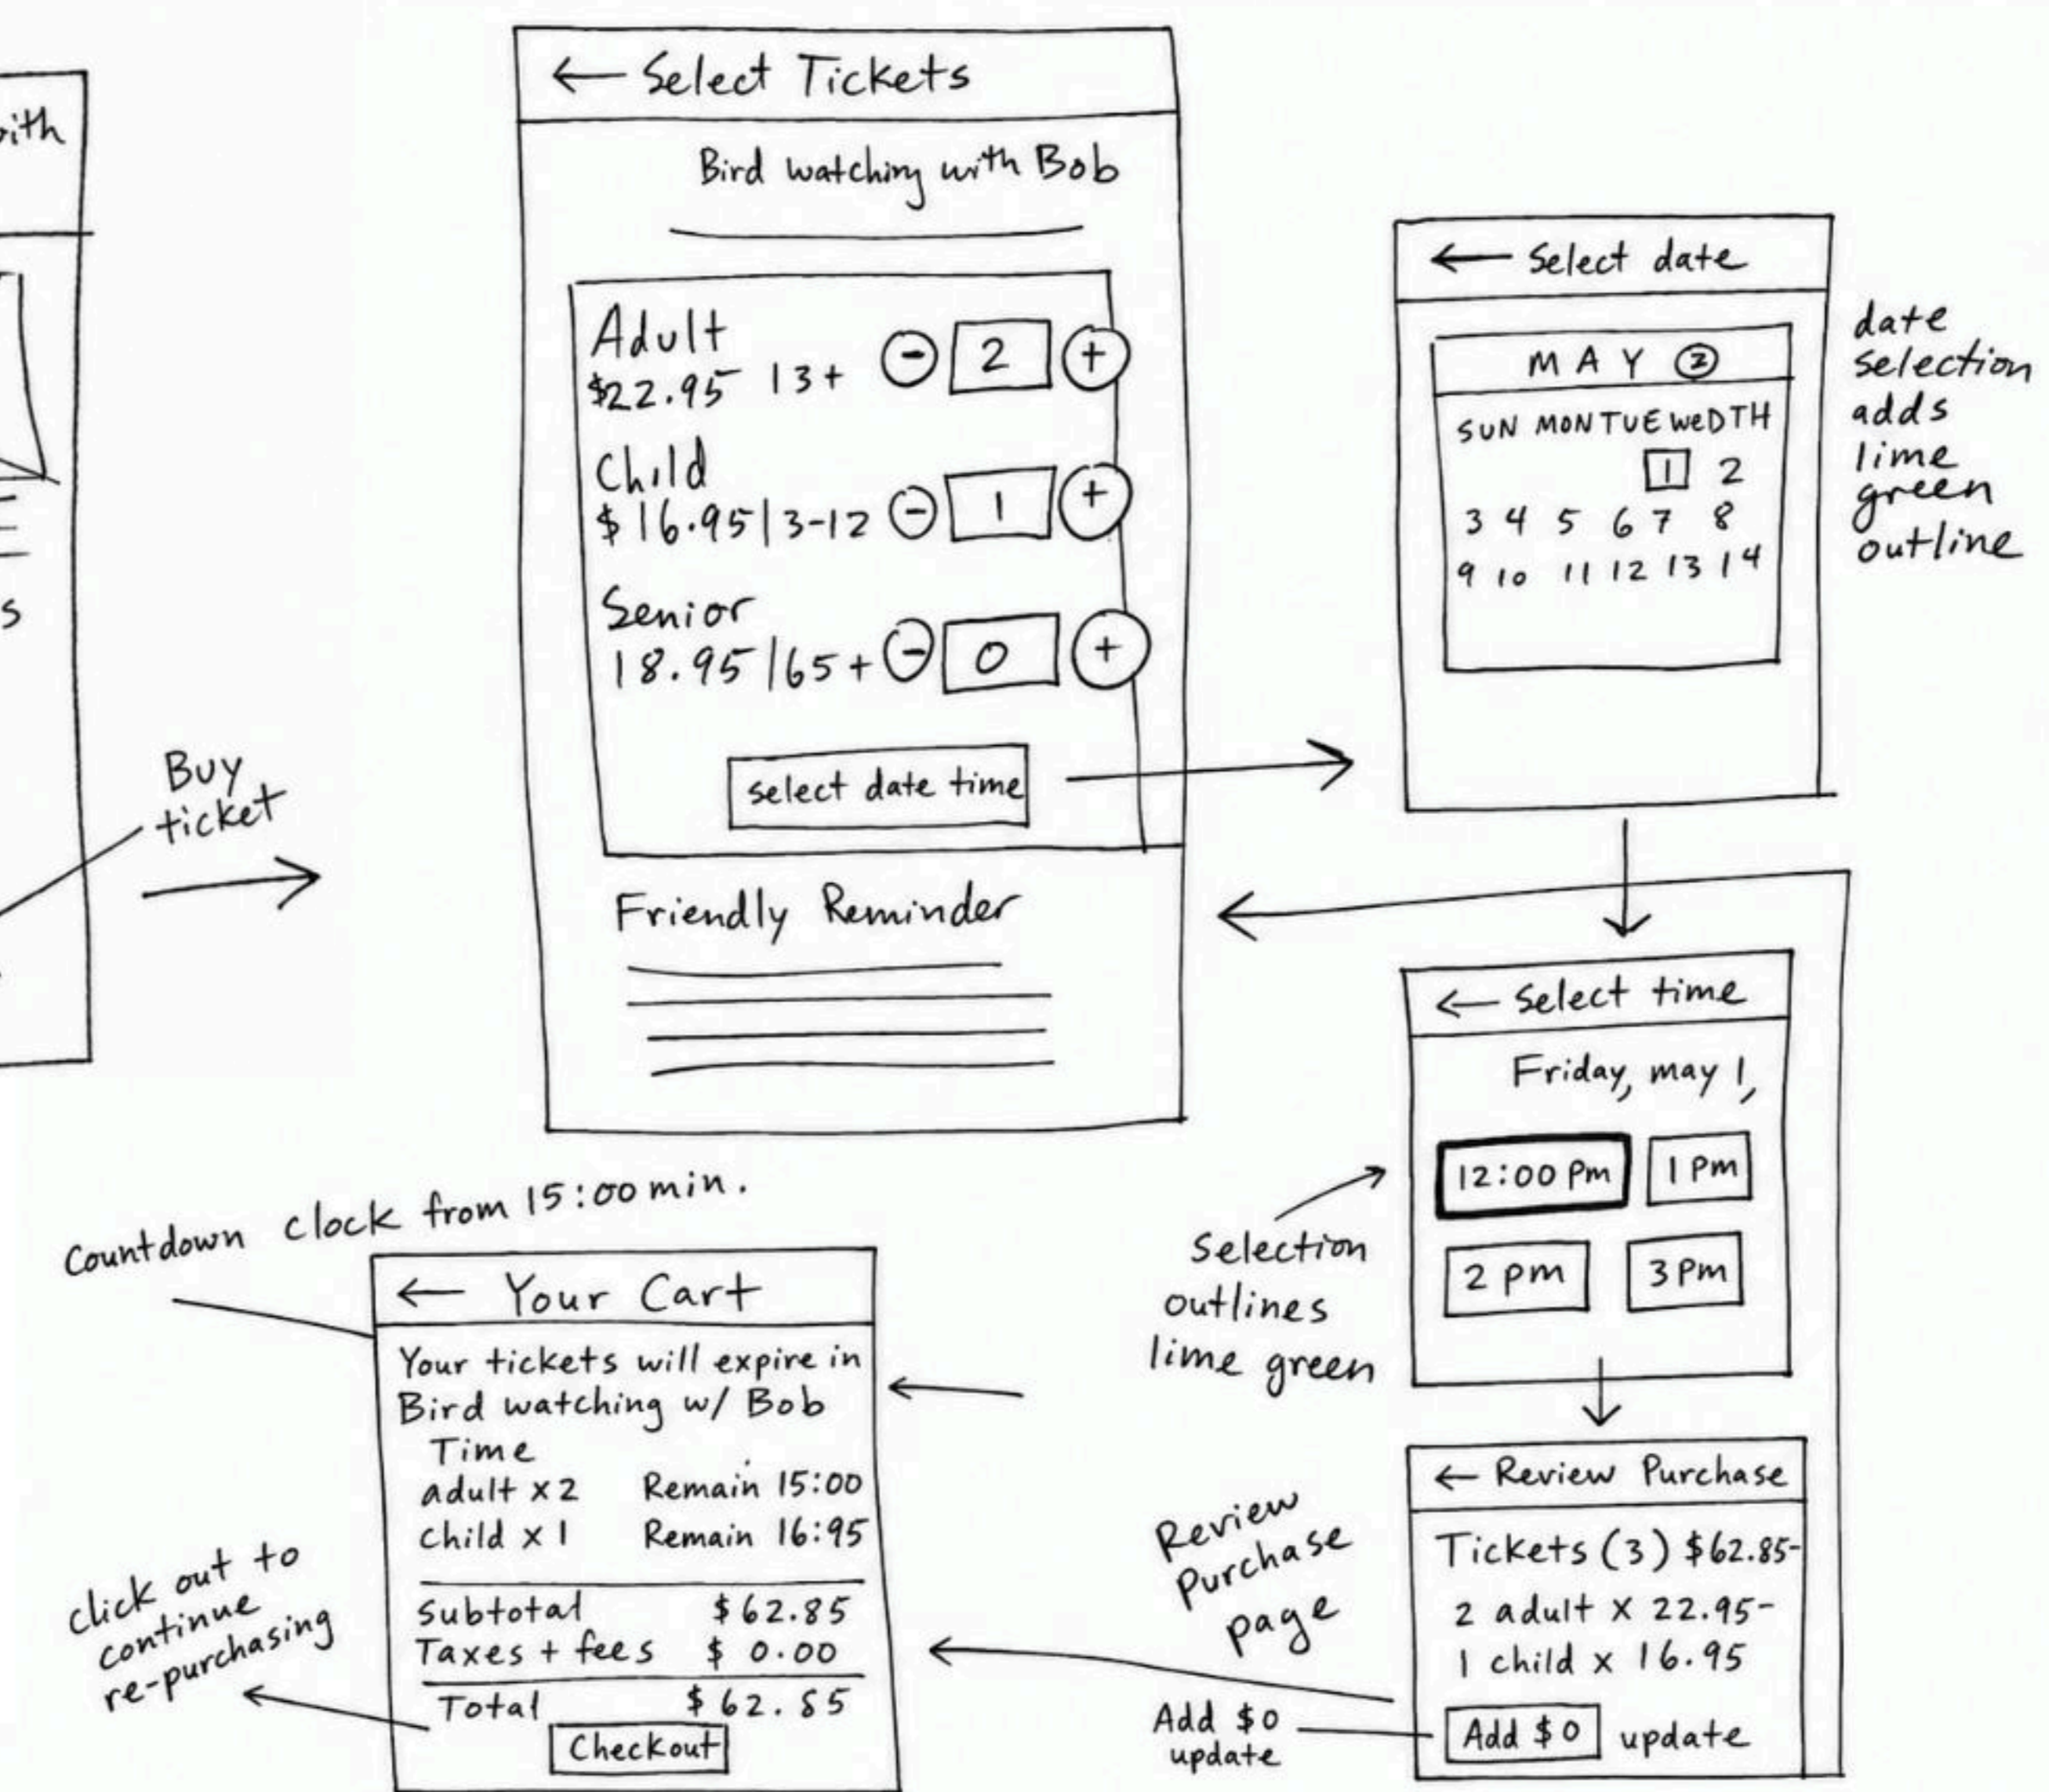 with
s
Buy
ticket
← Select Tickets
Bird watching with Bob
Adult
$22.95 13+ - 2 +
Child
$16.95|3-12 - 1 +
Senior
18.95|65+ - 0 +
select date time
Friendly Reminder
← Select date
MAY ②
SUN MON TUE WeD TH
1 2
3 4 5 6 7 8
9 10 11 12 13 14
date
selection
adds
lime
green
outline
← Select time
Friday, may 1,
12:00 Pm 1 Pm
2 pm 3 Pm
Selection
outlines
lime green
← Review Purchase
Tickets (3) $62.85-
2 adult x 22.95-
1 child x 16.95
Add $0 update
Review
Purchase
page
Add $0
update
Countdown clock from 15:00 min.
← Your Cart
Your tickets will expire in
Bird watching w/ Bob
Time
adult x 2 Remain 15:00
child x 1 Remain 16:95
Subtotal $62.85
Taxes + fees $ 0.00
Total $62.85
Checkout
click out to
continue
re-purchasing